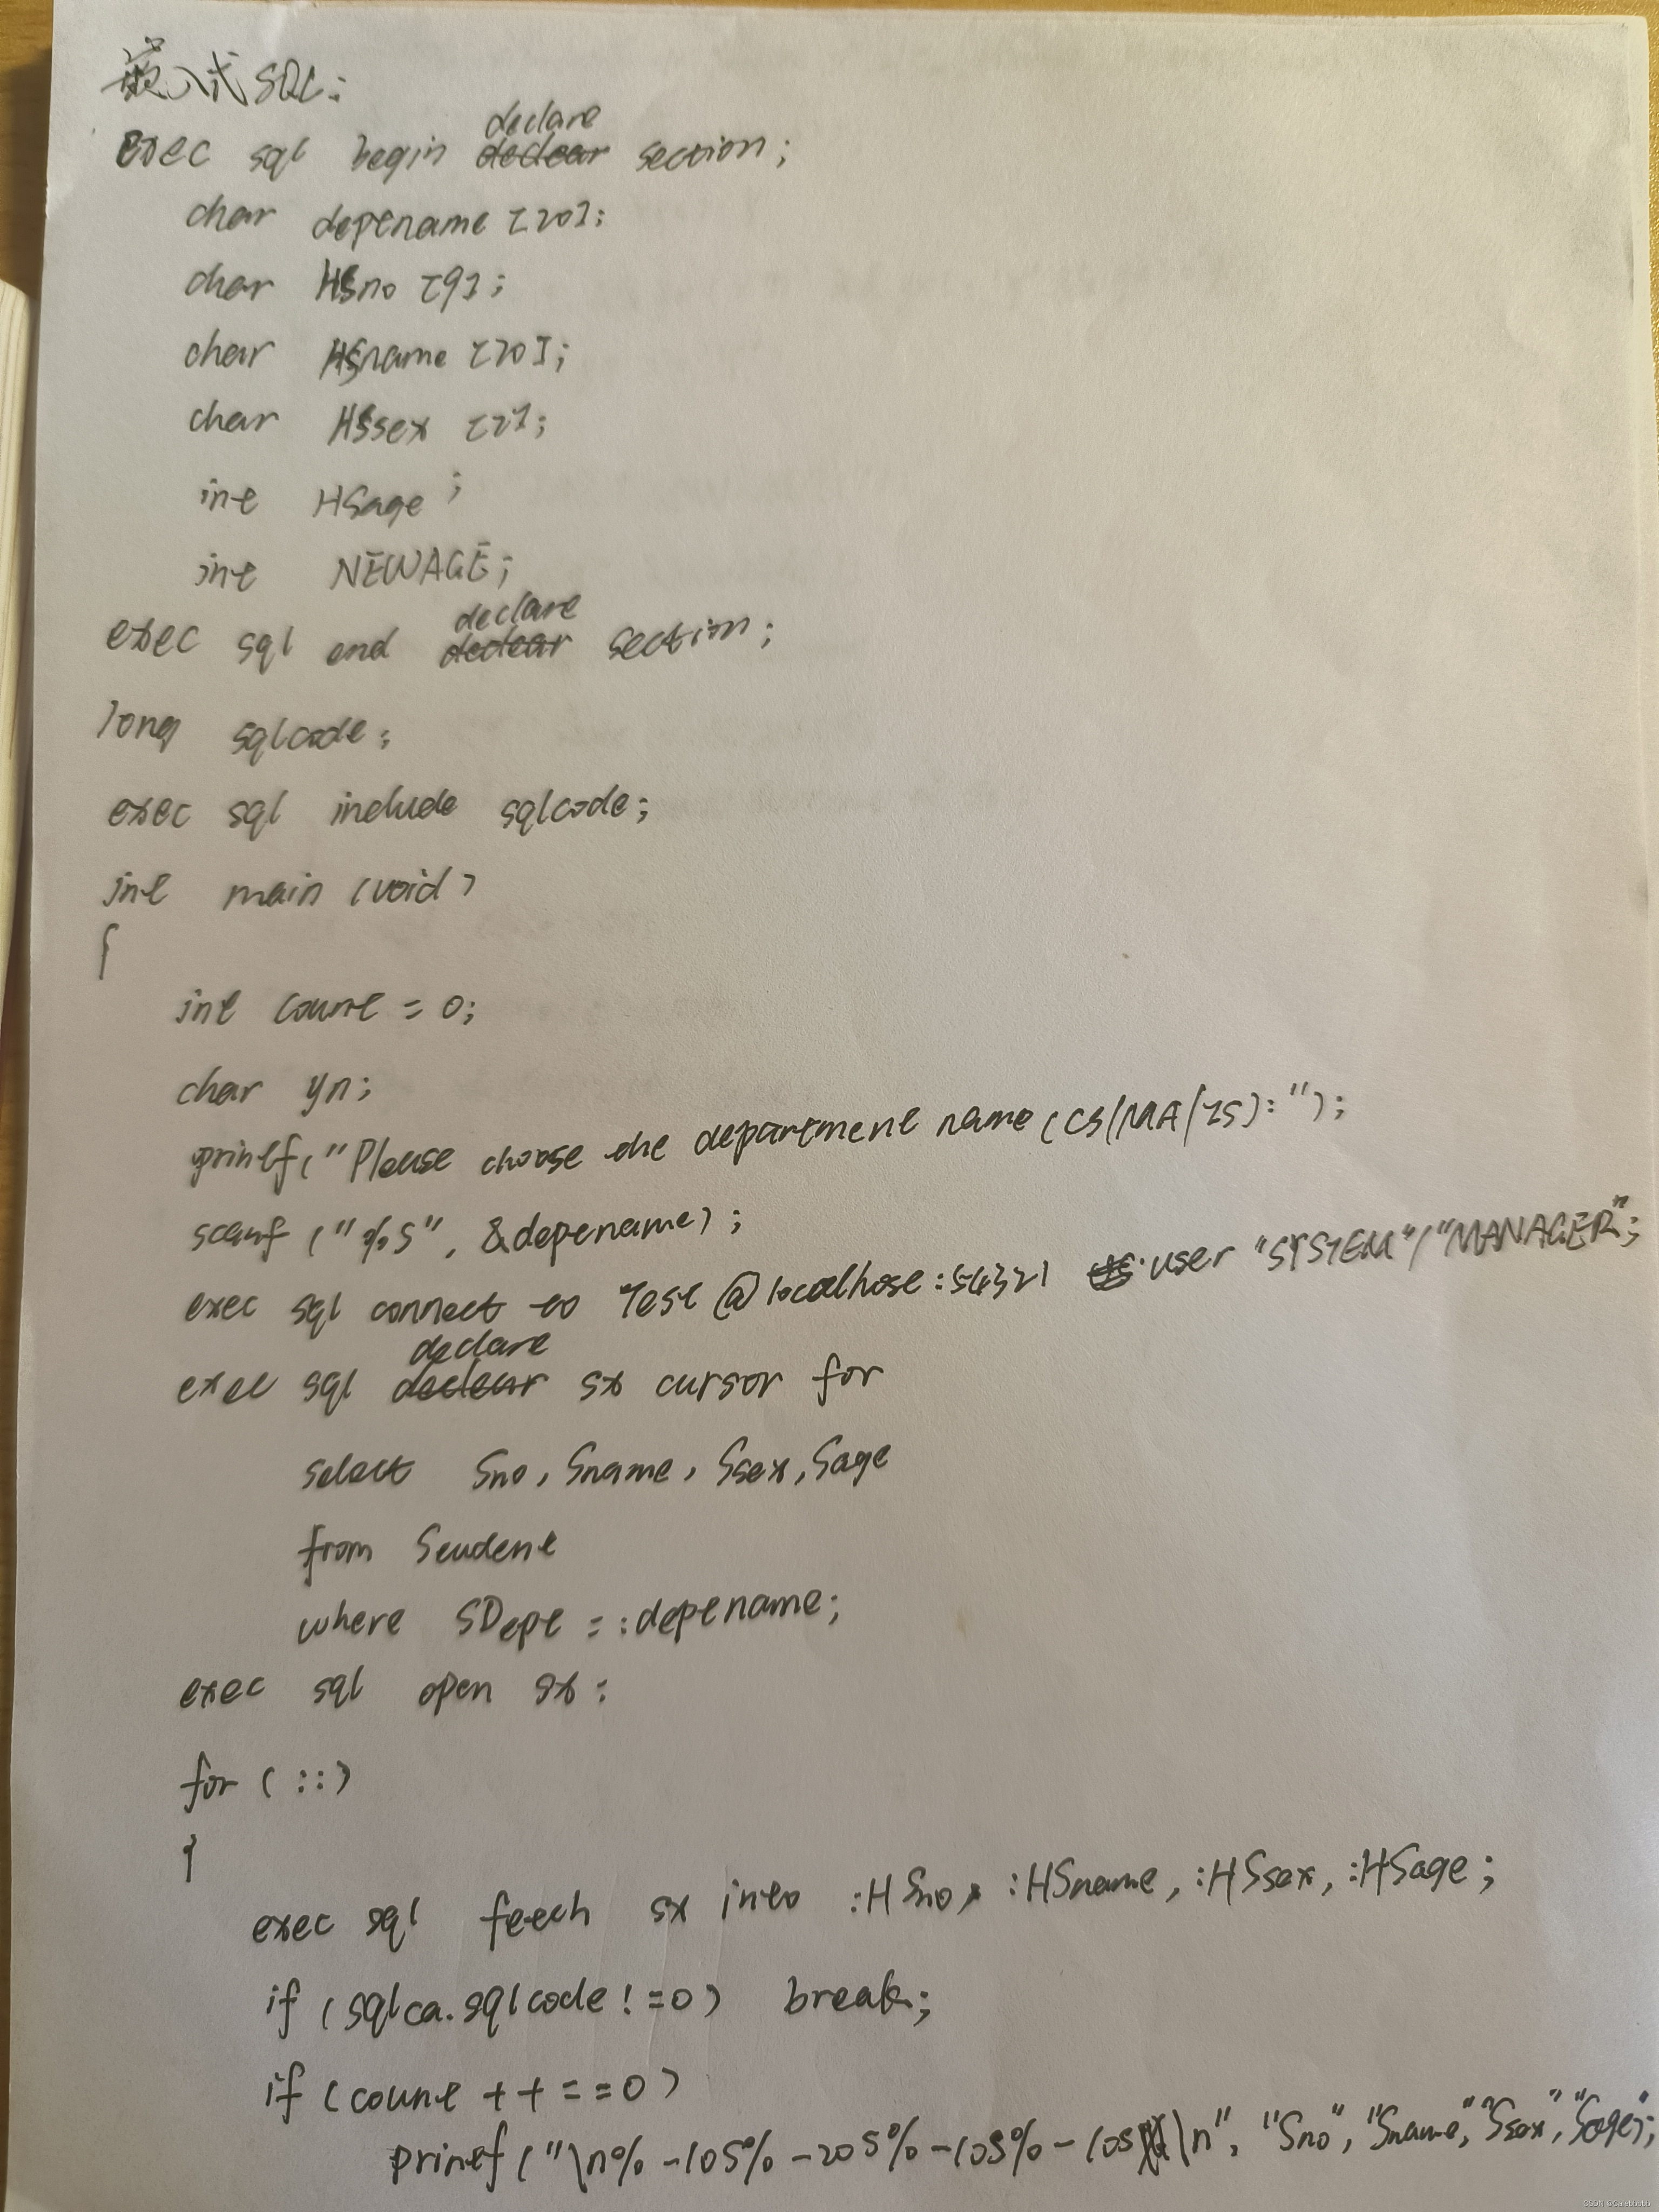 嵌入式SQL:
exec sql begin declare section;
char deptname [20];
char HSno [9];
char HSname [20];
char HSsex [2];
int HSage ;
int NEWAGE;
exec sql end declare section;
long sqlcode;
exec sql include sqlcode;
int main (void)
{
int count = 0;
char yn;
printf("Please choose the department name (CS/MA/IS): ");
scanf ("%s", &deptname);
exec sql connect to Test @localhost:54321 user "SYSTEM"/"MANAGER";
exec sql declare sx cursor for
select Sno, Sname, Ssex, Sage
from Student
where SDept = :deptname;
exec sql open sx;
for (;;)
{
exec sql fetch sx into :HSno, :HSname, :HSsex, :HSage;
if (sqlca.sqlcode != 0) break;
if (count ++ == 0)
printf ("\n% -10s% -20s% -10s% -10s\n", "Sno", "Sname", "Ssex", "Sage");
CSDN @Calebbbbb